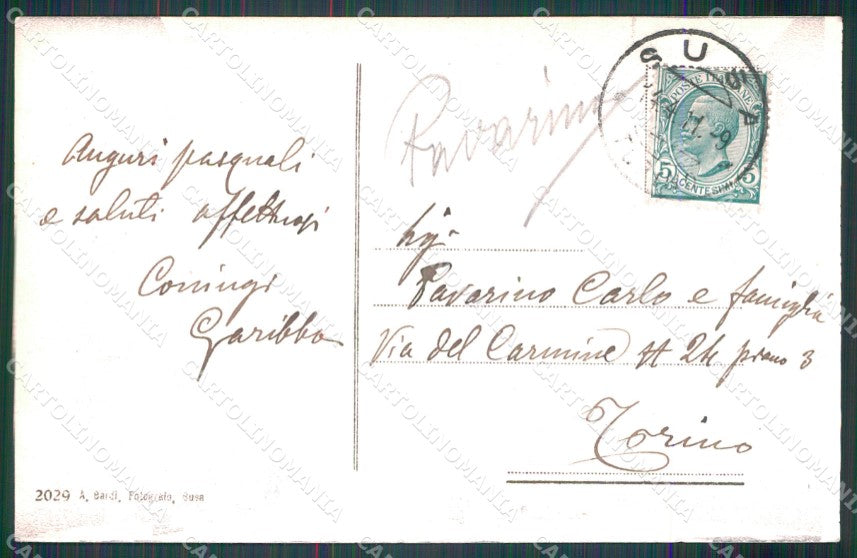 Auguri pasquali
e saluti affettuosi
Coniugi
Garibbo
2029 A. Bardi, Fotografo, Susa
Pavarino
SUSA
POSTE ITALIANE
5 CENTESIMI 5
Sig.
Pavarino Carlo e famiglia
Via del Carmine N 24 piano 3
Torino
CARTOLINOMANIA